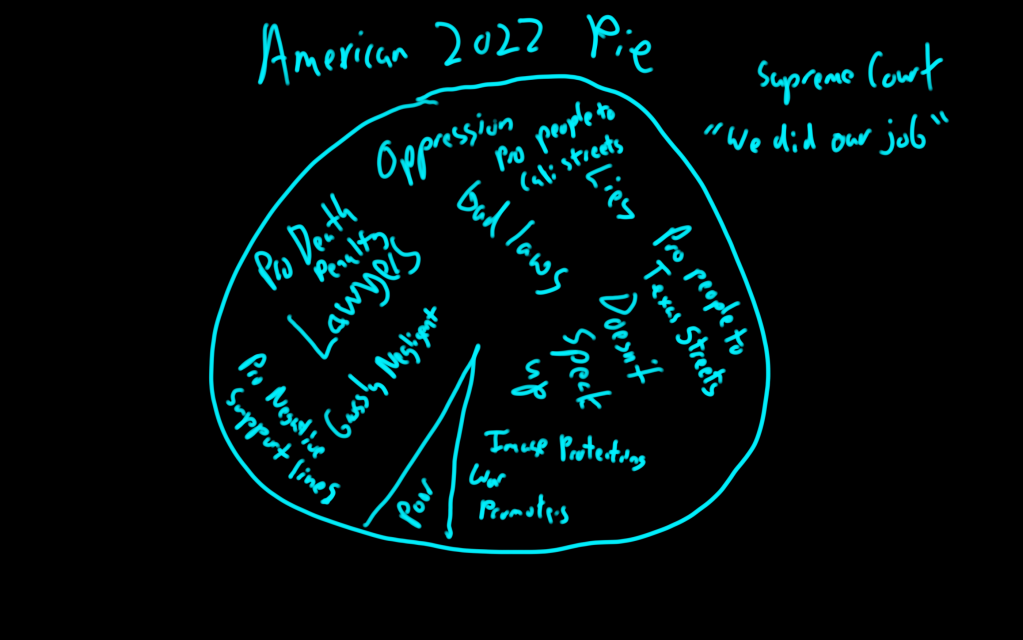 American 2022 Pie
Supreme Court
"We did our job"
Oppression
Pro people to
Cali streets
Lies
Bad laws
Pro Death
Penalty
Lawyers
Pro people to
Texas Streets
Doesn't
Speak
up
Negligent
Pro Negative
Support lines
Poor
Image Protecting
War
Promoters